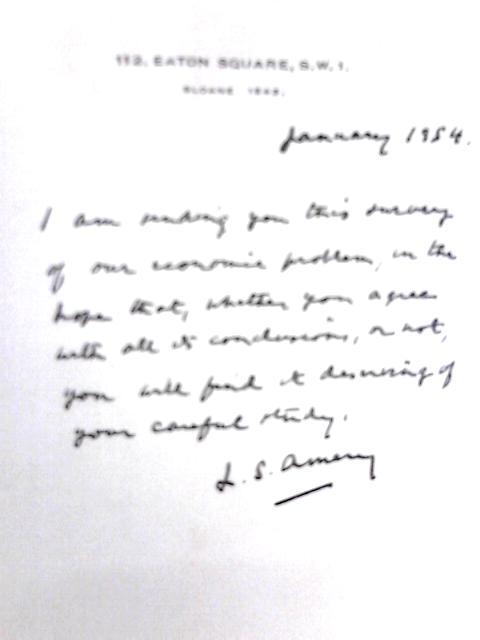 112, EATON SQUARE, S.W.1.
SLOANE 1543.
January 1954.
I am sending you this survey
of our economic problem, in the
hope that, whether you agree
with all its conclusions, or not,
you will find it deserving of
your careful study.
L. S. Amery